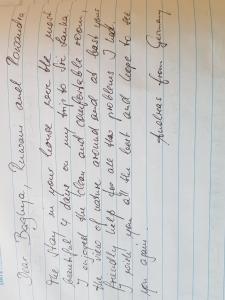 Dear Baghya, Ruwani and
The stay in your house were the most
beautiful 4 days on my trip to Sri Lanka
I enjoyed the clean and comfortable room
the view of nature around and at last your
friendly help for all the problems I had.
I wish you all the best and hope to see
you again.
Andreas from Germany